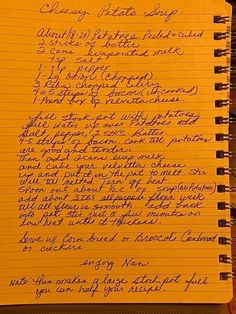 Cheesy Potato Soup
About (18-20) Potatoes Peeled & Cubed
2 sticks of butter
2 cans evaporated milk
1 Tsp Salt
1 Tsp pepper
1 Lg Onion (chopped)
3 Ribs chopped Celery
4 or 5 strips of bacon (uncooked)
1 pound box of Velveeta cheese
Fill stock pot with potatoes
fill water up over potatoes add
Salt, pepper, 2 sks. Butter
4-5 strips of bacon. Cook till potatoes
are good and tender.
Then add 2 cans evap milk
and cube your Velveeta cheese
up and put it in the pot to melt. Stir
well till melted turn off heat.
Spoon out about 2 c. of soup (no Potatoes)
add about 3 TBS all purpose flour wisk
till all flour is smooth add back
into pot stir just a few minutes on
low heat until it thickens
Serve w/ Corn bread or Broccoli Cornbread
or crackers
enjoy Nan
Note: this makes a large stock pot full
you can half your recipe.